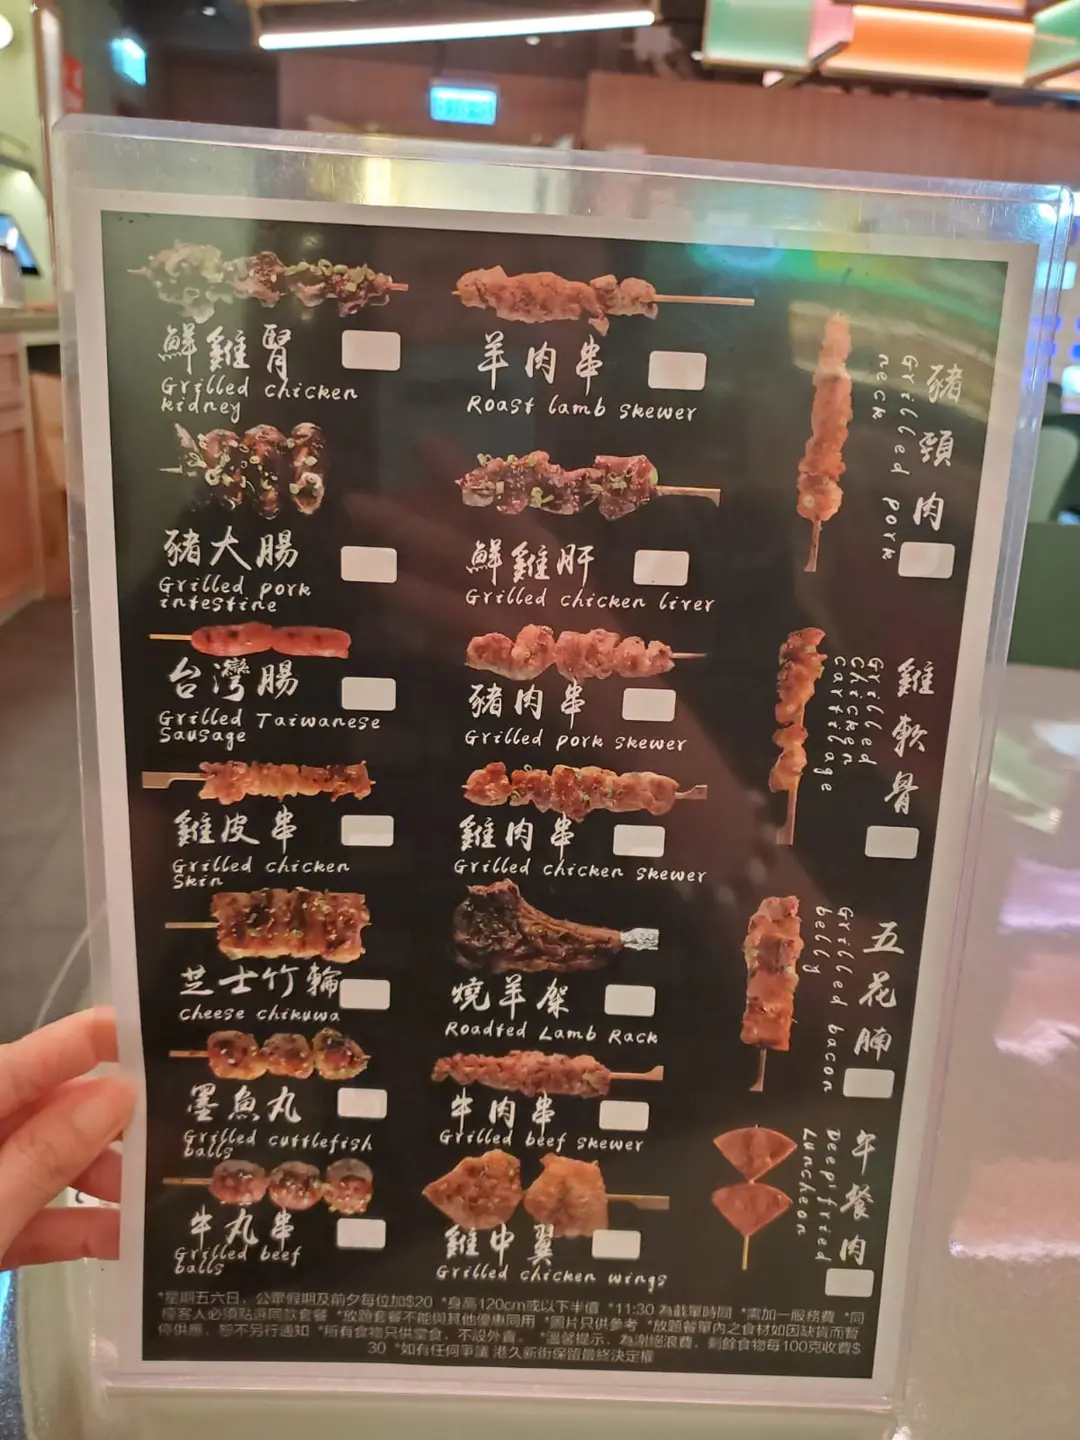 鮮雞腎
Grilled chicken
kidney
豬大腸
Grilled pork
intestine
台灣腸
Grilled Taiwanese
Sausage
雞皮串
Grilled chicken
Skin
芝士竹輪
Cheese chikuwa
墨魚丸
Grilled cuttlefish
balls
牛丸串
Grilled beef
balls
羊肉串
Roast lamb skewer
鮮雞肝
Grilled chicken liver
豬肉串
Grilled pork skewer
雞肉串
Grilled chicken skewer
燒羊架
Roadted Lamb Rack
牛肉串
Grilled beef skewer
雞中翼
Grilled chicken wings
豬頸肉
Grilled pork
neck
雞軟骨
Grilled
chicken
cartilage
五花腩
Grilled bacon
belly
午餐肉
Deepfried
Luncheon
*星期五六日，公眾假期及前夕每位加$20 *身高120cm或以下半價 *11:30 為截單時間 *需加一服務費 *同
檯客人必須點選同款套餐 *放題套餐不能與其他優惠同用 *圖片只供參考 *放題餐單內之食材如因缺貨而暫
停供應，恕不另行通知 *所有食物只供堂食，不設外賣。 *溫馨提示，為謝絕浪費，剩餘食物每100克收費$
30 *如有任何爭議 港久新街保留最終決定權